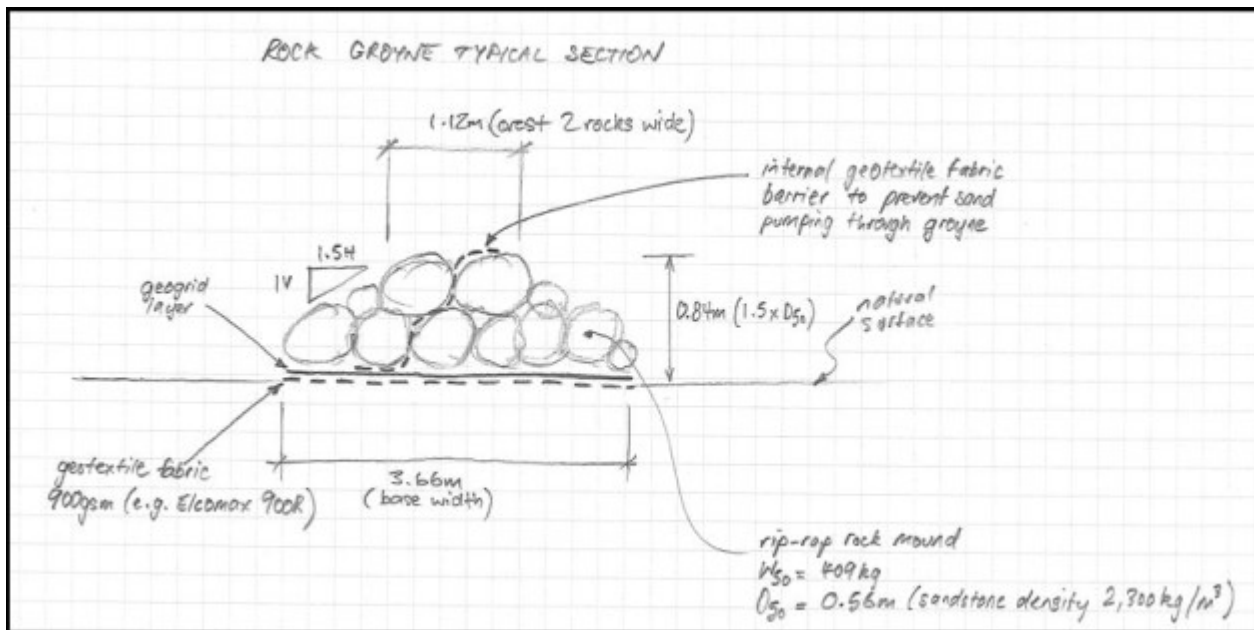 ROCK GROYNE TYPICAL SECTION
1.12m (crest 2 rocks wide)
internal geotextile fabric
barrier to prevent sand
pumping through groyne
1.5H
1V
geogrid
layer
0.84m (1.5 x D50)
natural
surface
geotextile fabric
900gsm (e.g. Elcomax 900R)
3.66m
(base width)
rip-rap rock mound
W50 = 409kg
D50 = 0.56m (sandstone density 2,300kg/m³)